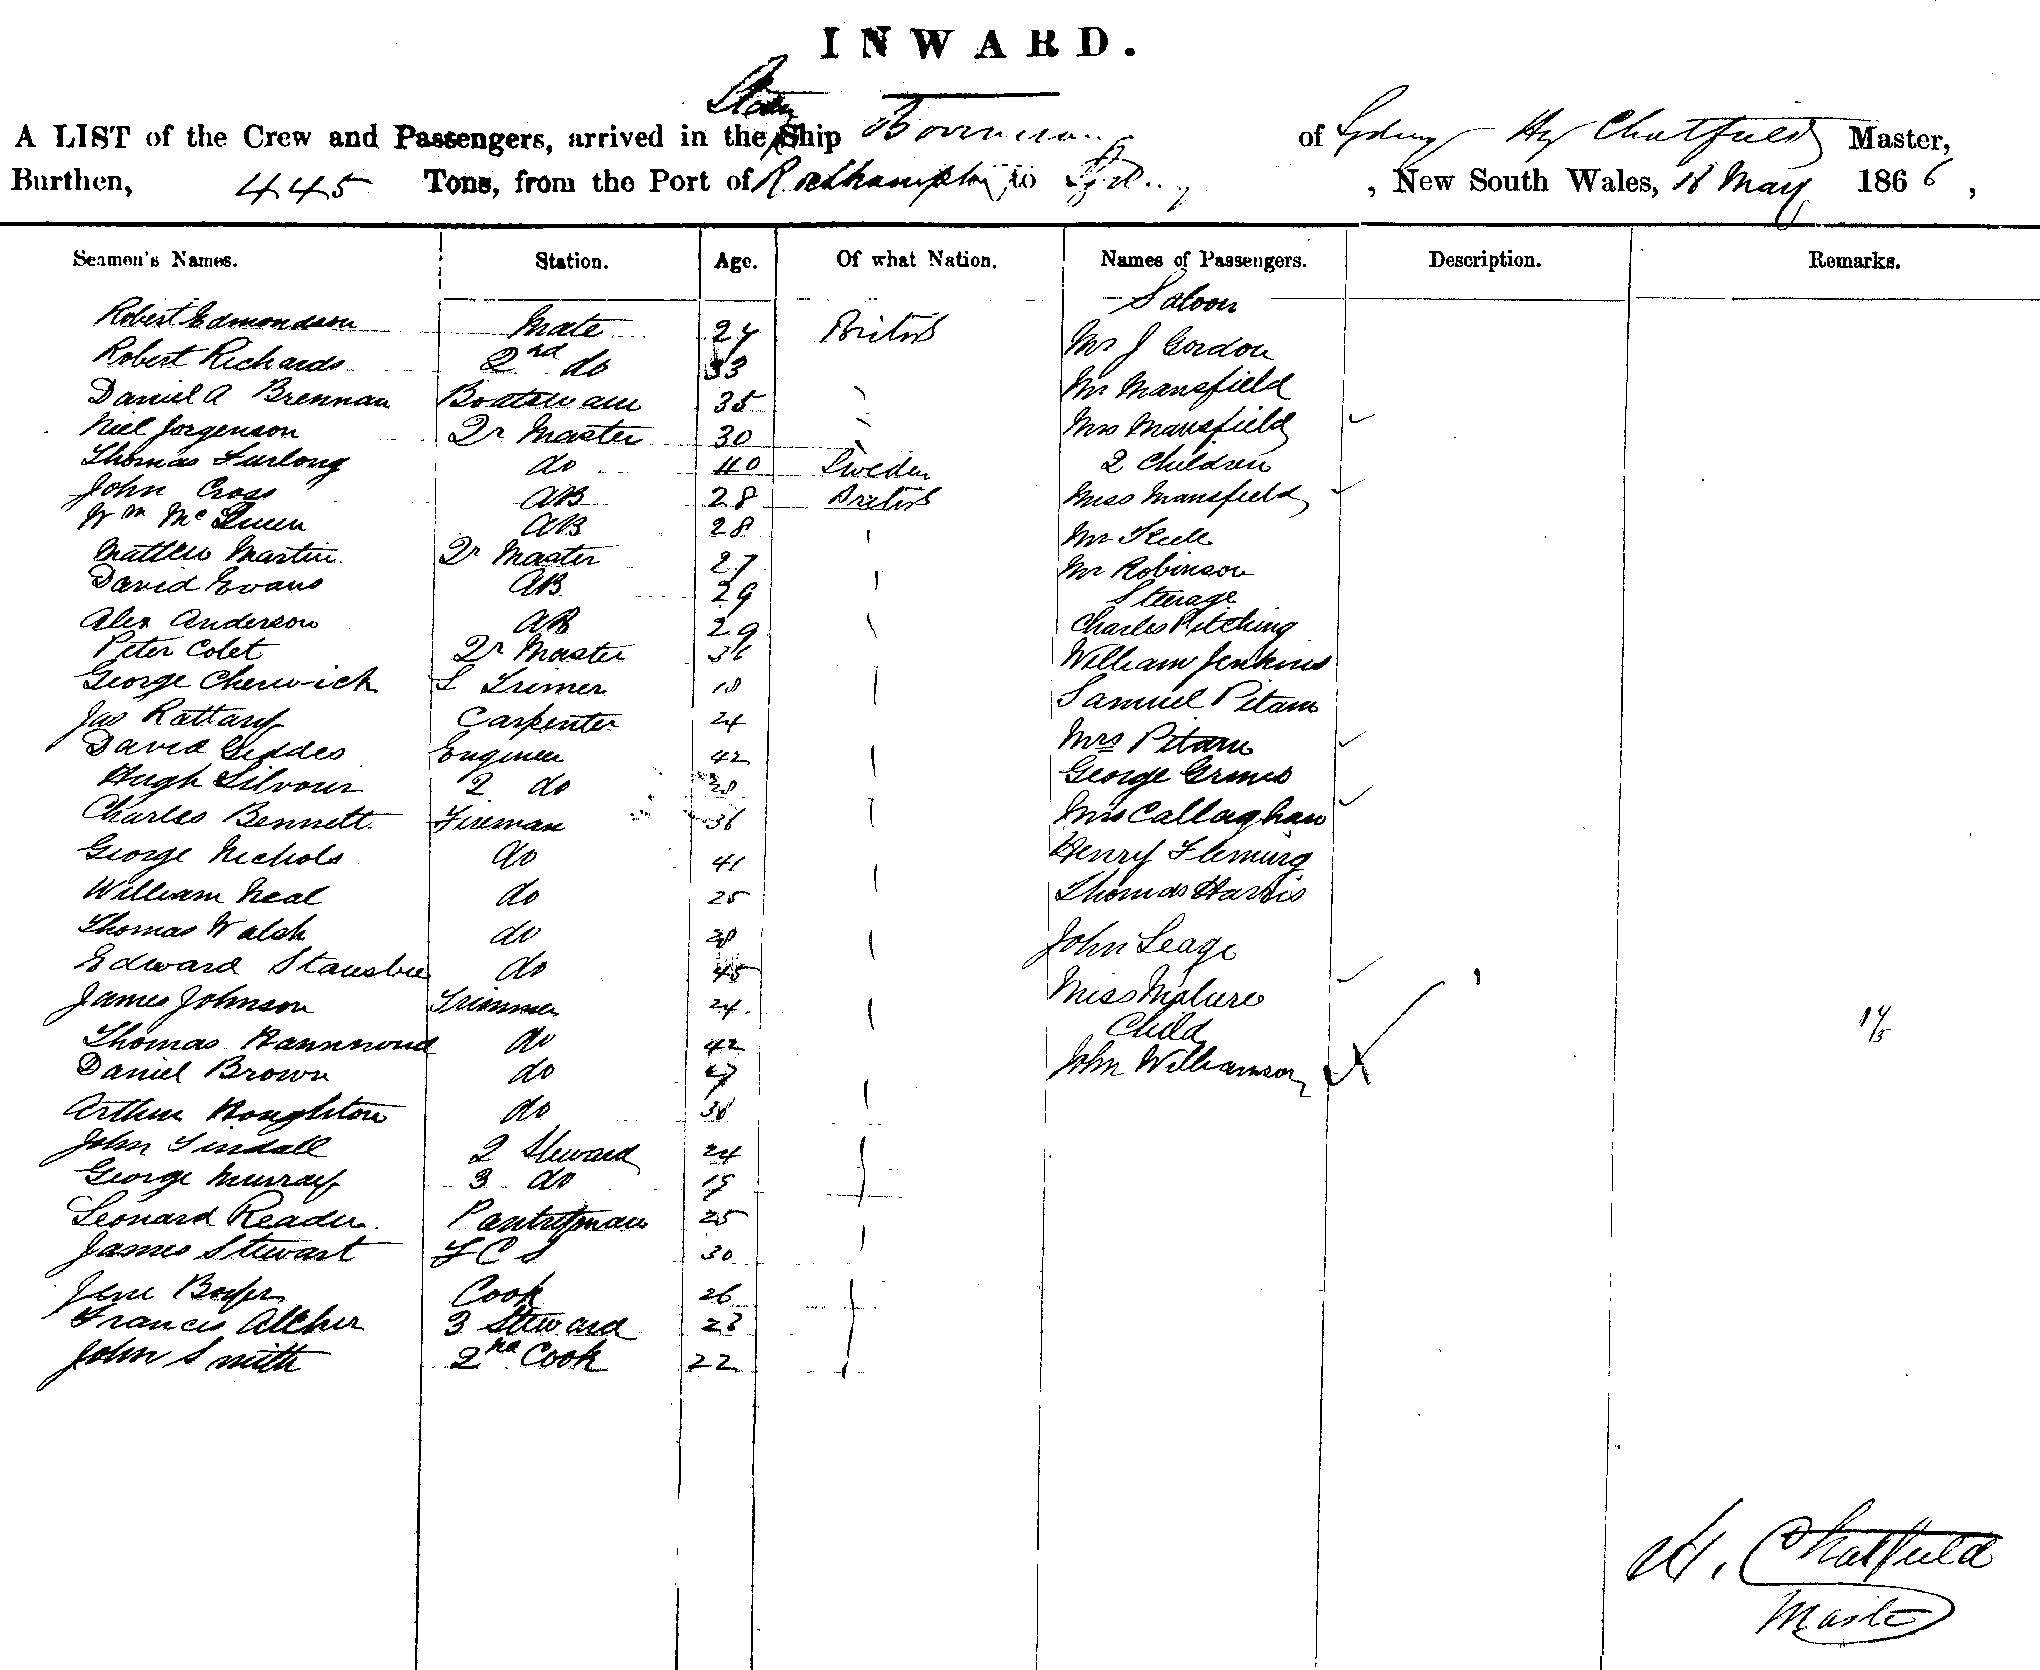 INWARD.
Steam
A LIST of the Crew and Passengers, arrived in the Ship of Sydney Hy Chatfield Master,
Burthen, 445 Tons, from the Port of Rockhampton to Sydney , New South Wales, 18 May 1866,
Seamen's Names. Station. Age. Of what Nation. Names of Passengers. Description. Remarks.
Saloon
Robert Edmondson Mate 27 British Mr J Gordon
Robert Richards 2nd do 33 Mr Mansfield
Daniel A Brennan Boatswain 35 Mrs Mansfield
Niel Jorgenson Qr Master 30 2 Children
Thomas Furlong do 40 Sweden Miss Mansfield
John Cross AB 28 British
Wm McQueen AB 28 Mr
Matthew Martin Qr Master 27 Mr Robinson
David Evans AB 29 Steerage
Alex Anderson AB 29 Charles Pitching
Peter Colet Qr Master 36 William Jenkins
George Cherwick Trimer 18 Samuel Pitam
Jas Rattary Carpenter 24 Mrs Pitam
David Geddes Engineer 42 George Grimes
Hugh Silvour 2 do 28 Mrs Callaghan
Charles Bennett Fireman 36 Henry Fleming
George Nichols do 41 Thomas Harris
William Neal do 25
Thomas Walsh do John Seage
Edward do 45 Miss
James Johnson Trimmer 24. Child
Thomas do 42 John Williamson
Daniel Brown do
Arthur Houghton do 36
John Tindall 2 Steward 24
George Murray 3 do 19
Leonard Reader Pantryman 25
James Stewart F C S 30
Cook 26
Francis 3 Steward 23
John Smith 2nd Cook 22
H. Chatfield
Master